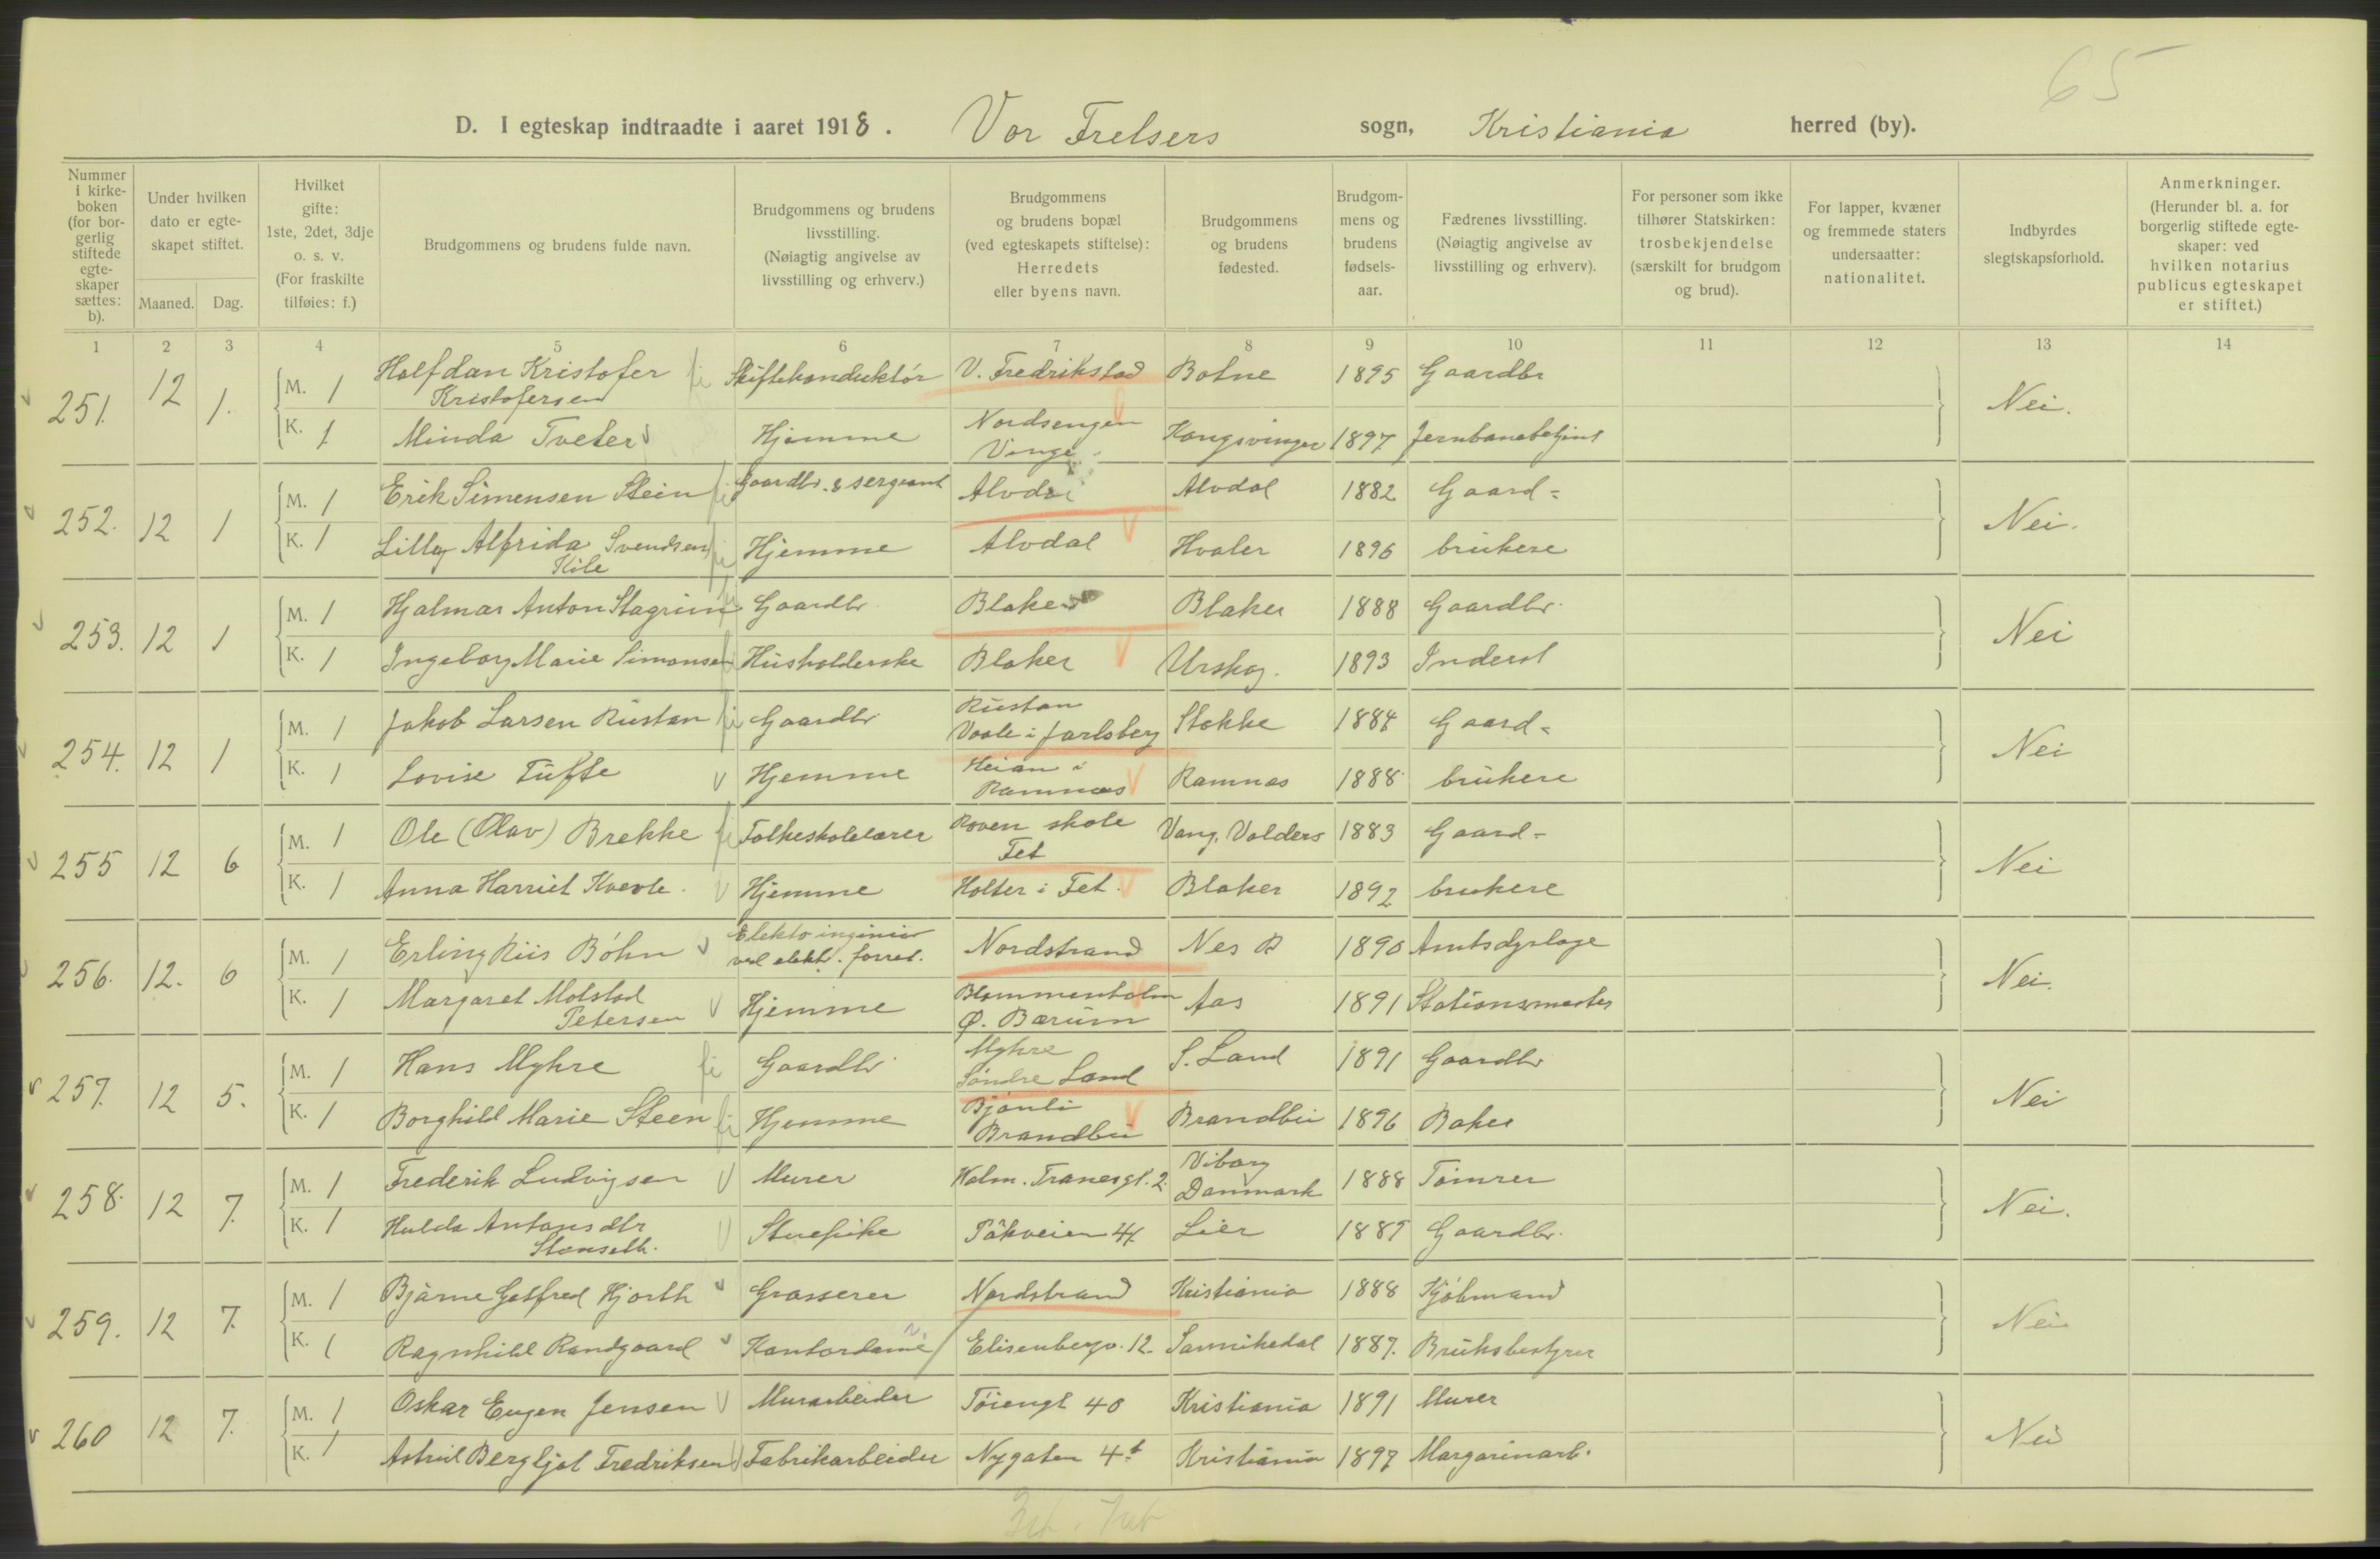 65
D. I egteskap indtraadte i aaret 1918. Vor Frelsers sogn, Kristiania herred (by).
Nummer i kirke-boken (for bor-gerlig stiftede egte-skaper sættes: b).
Under hvilken dato er egte-skapet stiftet.
Maaned. Dag.
Hvilket gifte: 1ste, 2det, 3dje o. s. v. (For fraskilte tilføies: f.)
Brudgommens og brudens fulde navn.
Brudgommens og brudens livsstilling. (Nøiagtig angivelse av livsstilling og erhverv.)
Brudgommens og brudens bopæl (ved egteskapets stiftelse): Herredets eller byens navn.
Brudgommens og brudens fødested.
Brudgom-mens og brudens fødsels-aar.
Fædrenes livsstilling. (Nøiagtig angivelse av livsstilling og erhverv).
For personer som ikke tilhører Statskirken: trosbekjendelse (særskilt for brudgom og brud).
For lapper, kvæner og fremmede staters undersaatter: nationalitet.
Indbyrdes slegtskapsforhold.
Anmerkninger. (Herunder bl. a. for borgerlig stiftede egte-skaper: ved hvilken notarius publicus egteskapet er stiftet.)
1 2 3 4 5 6 7 8 9 10 11 12 13 14
251. 12 1. M. 1 Halfdan Kristofer Kristofersen Skiftekonduktör V. Fredrikstad Botne 1895 Gaardbr Nei.
K. 1 Minda Tveter Hjemme Nordsengen Vinge Kongsvinger 1897 Jernbanebetjent
252. 12 1 M. 1 Erik Simensen Stein Gaardbr. & sergeant Alvdal Alvdal 1882 Gaard- Nei.
K. 1 Lilly Alfrida Svendsen Kile Hjemme Alvdal Hvaler 1896 brukere
253. 12 1 M. 1 Hjalmar Anton Slagrim Gaardbr. Blaker Blaker 1888 Gaardbr. Nei
K. 1 Ingeborg Marie Simonsen Husholderske Blaker Urskog. 1893 Inderst
254. 12 1 M. 1 Jakob Larsen Rustan Gaardbr Rustan Vaale i Jarlsberg Stokke 1884 Gaard- Nei
K. 1 Lovise Tufte Hjemme Heian i Ramnæs Ramnæs 1888 brukere
255 12 6 M. 1 Ole (Olav) Brekke Folkeskolelærer Roven skole Fet Vang, Valders 1883 Gaard- Nei
K. 1 Anna Harriet Kvevle. Hjemme Holter i Fet. Blaker 1892 brukere
256. 12. 6 M. 1 Erling Riis Böhn Elektoinginiør ved elekt. forret. Nordstrand Nes R 1890 Amtsdyrlæge Nei.
K. 1 Margaret Molstad Petersen Hjemme Blommenholm Ø. Bærum Aas 1891 Stationsmester
257. 12 5. M. 1 Hans Myhre Gaardbr Myhre Söndre Land S. Land 1891 Gaardbr Nei
K. 1 Borghild Marie Steen Hjemme Bjönli Brandbu Brandbu 1896 Baker
258. 12 7. M. 1 Frederik Ludvigsen Murer Holm. Tranesgt. 2. Viborg Danmark 1888 Tömrer Nei.
K. 1 Hulda Antonsdtr Stenseth. Stuepike Påkveien 4. Lier 1889 Gaardbr.
259. 12 7. M. 1 Bjarne Gotfred Hjorth Grosserer Nordstrand Kristiania 1888 Kjöbmand Nei
K. 1 Ragnhild Randgaard Kontordame Elisenbergv. 12. Sannikedal 1887. Bruksbestyrer
260 12 7. M. 1 Oskar Eugen Jensen Murarbeider Töiengt 40 Kristiania 1891 Murer Nei
K. 1 Astrid Bergljot Fredriksen Fabrikarbeider Nygaten 4b Kristiania 1897 Margarinarb.